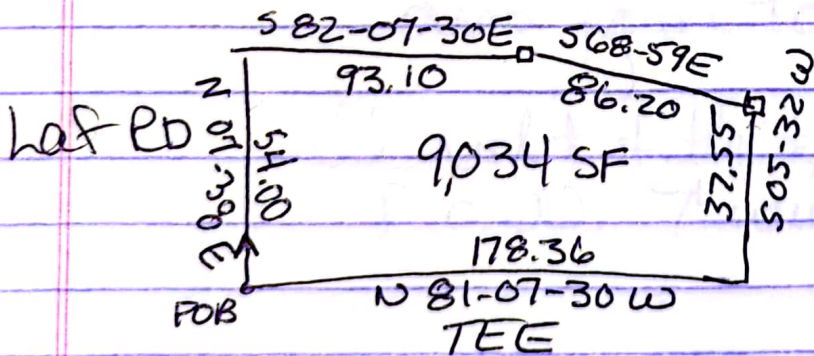 S 82-07-30E
S68-59E
93.10
86.20
Laf RD
N 07-38 E
54.00
9,034 SF
37.55
S05-32 W
178.36
N 81-07-30 W
POB
TEE